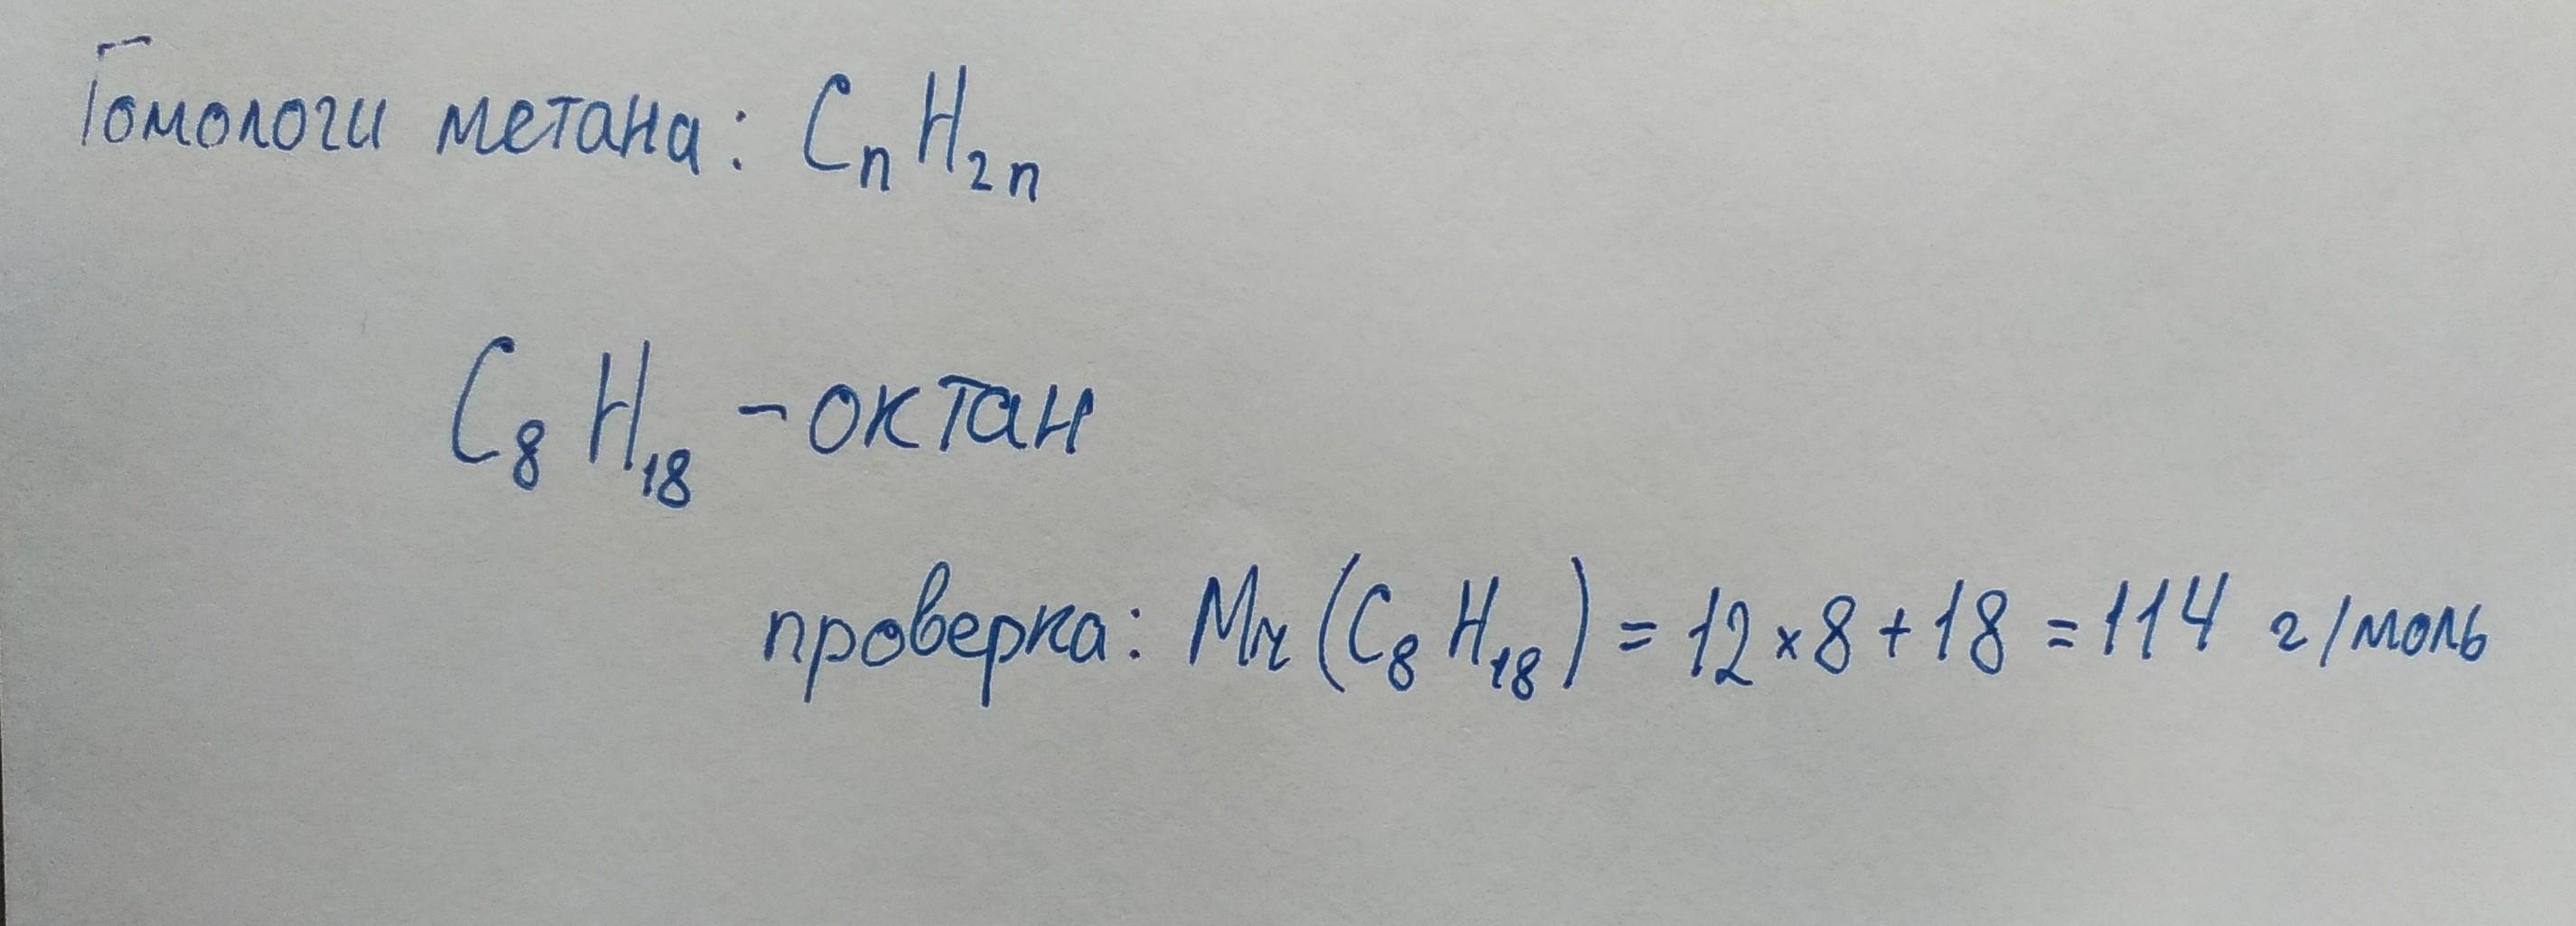 Гомологи метана: CₙH₂ₙ
C₈H₁₈ – октан
проверка: Mr (C₈H₁₈) = 12 × 8 + 18 = 114 г/моль